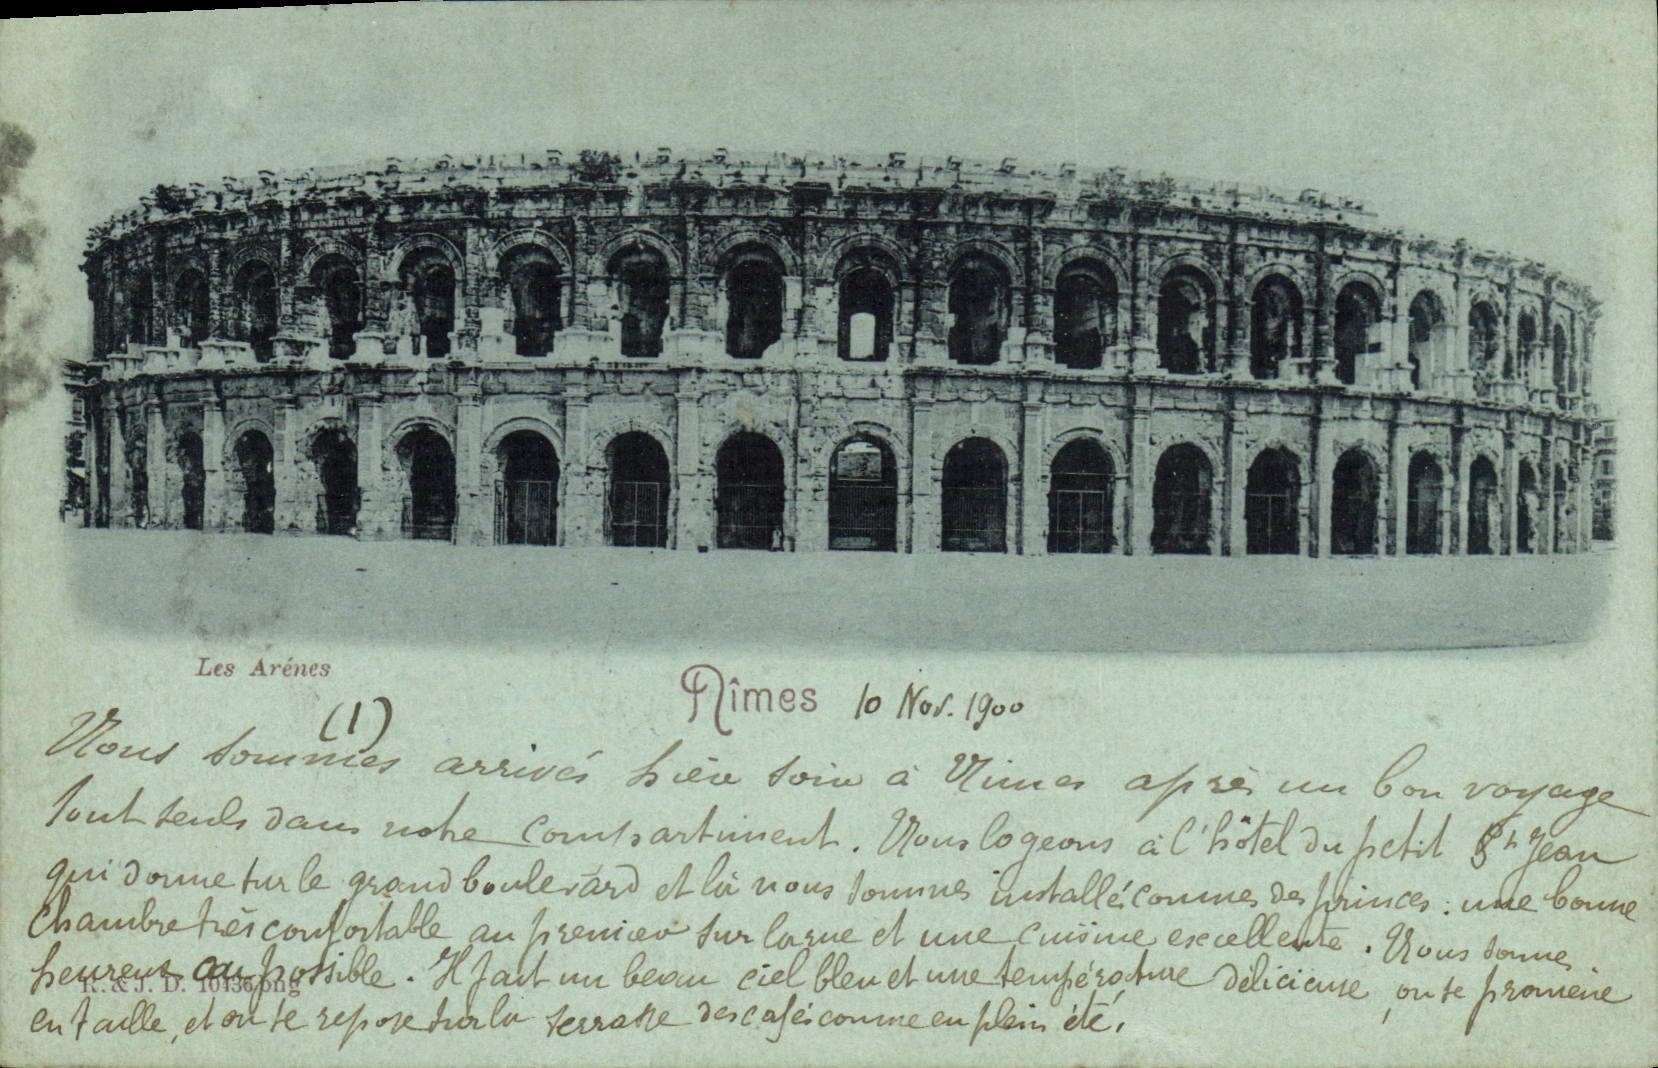 Les Arénes
Nîmes 10 Nov. 1900
(1)
Nous sommes arrivés hier soir à Nimes après un bon voyage
tout seuls dans notre compartiment. Nous logeons à l'hôtel du petit St Jean
qui donne sur le grand boulevard et là nous sommes installés comme des princes : une bonne
chambre très confortable au premier sur la rue et une cuisine excellente. Nous sommes
heureux au possible. Il fait un beau ciel bleu et une température délicieuse, on se promène
R. & J. D. 10136
en taille, et on se repose sur la terrasse des cafés comme en plein été.